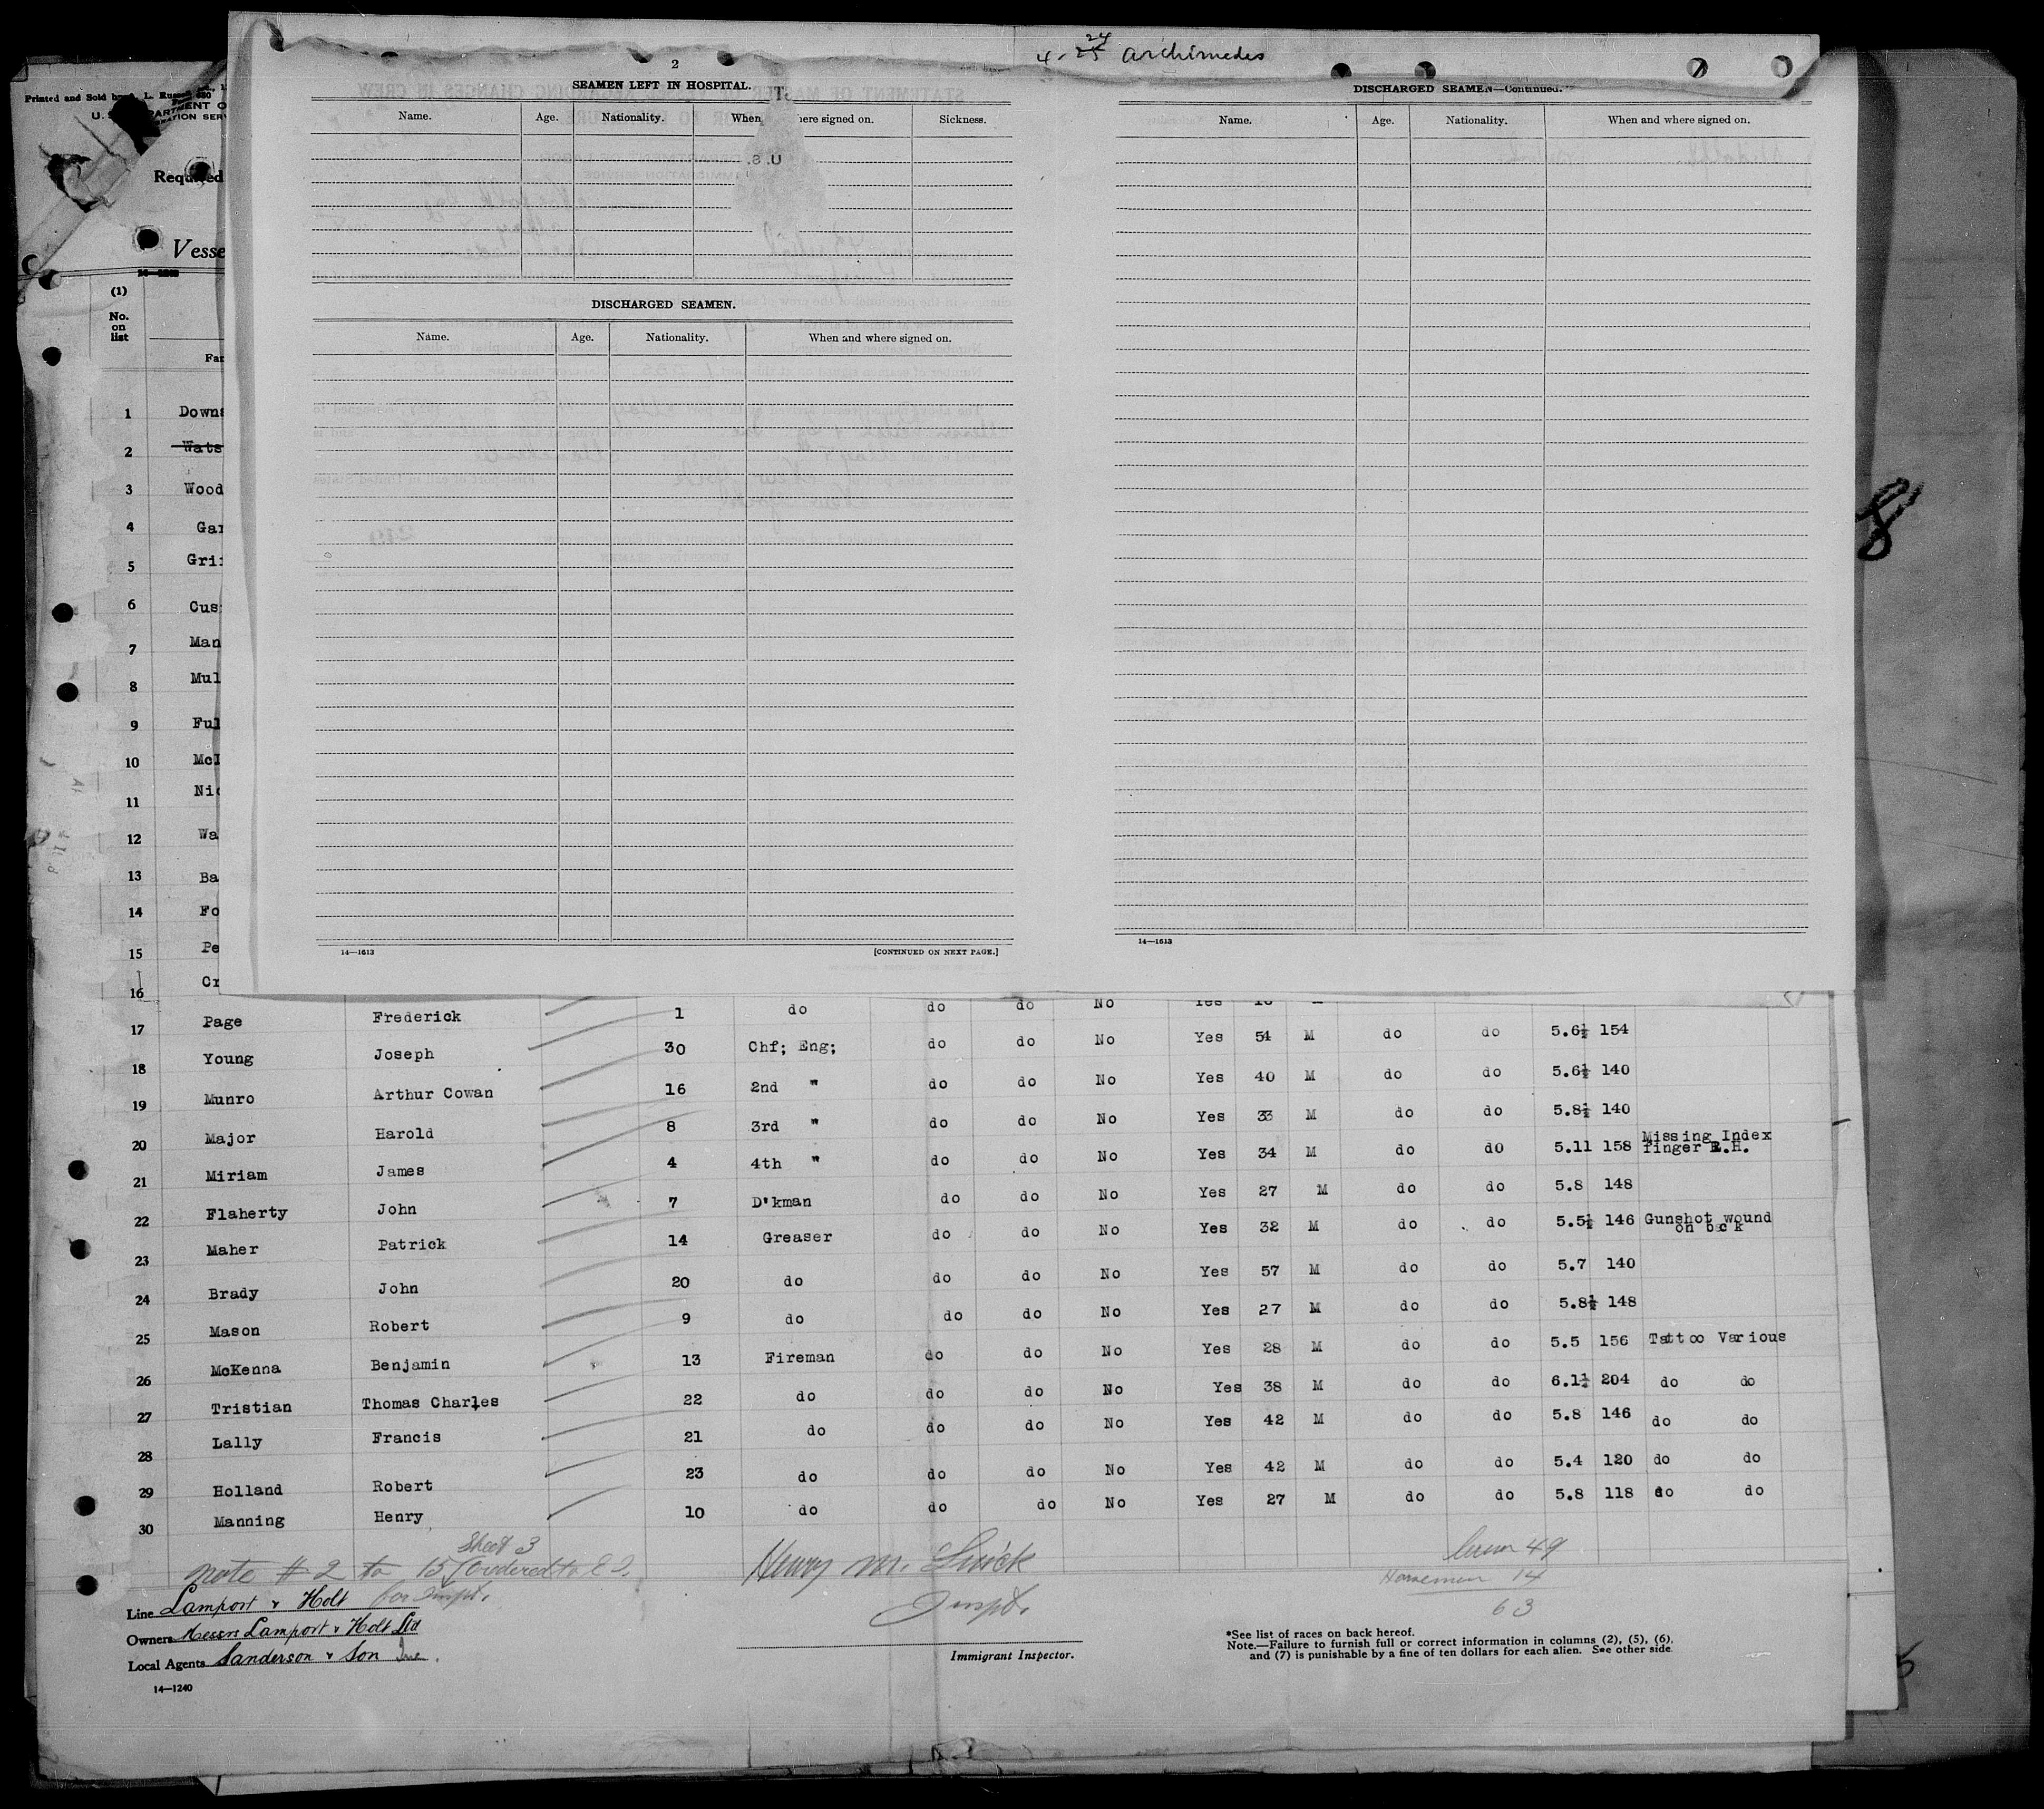 4-25 24 Archimedes
2
SEAMEN LEFT IN HOSPITAL.
Name. Age. Nationality. When here signed on. Sickness.
DISCHARGED SEAMEN.
Name. Age. Nationality. When and where signed on.
14—1613 [CONTINUED ON NEXT PAGE.]
DISCHARGED SEAMEN—Continued.
Name. Age. Nationality. When and where signed on.
14—1613
8
Printed and Sold by L.
U. S.
Required
Vesse
(1)
No.
on
list
Fam
1 Downs
2 Wats
3 Wood
4 Gar
5 Grif
6 Cus
7 Man
8 Mul
9 Ful
10 McI
11 Nic
12 Wa
13 Ba
14 Fo
15 Pe
16 Cr
17 Page Frederick 1 do do do No Yes
18 Young Joseph 30 Chf; Eng; do do No Yes 54 M do do 5.6½ 154
19 Munro Arthur Cowan 16 2nd " do do No Yes 40 M do do 5.6½ 140
20 Major Harold 8 3rd " do do No Yes 33 M do do 5.8½ 140
21 Miriam James 4 4th " do do No Yes 34 M do do 5.11 158 Missing Index finger R.H.
22 Flaherty John 7 D'kman do do No Yes 27 M do do 5.8 148
23 Maher Patrick 14 Greaser do do No Yes 32 M do do 5.5½ 146 Gunshot wound on back
24 Brady John 20 do do do No Yes 57 M do do 5.7 140
25 Mason Robert 9 do do do No Yes 27 M do do 5.8½ 148
26 McKenna Benjamin 13 Fireman do do No Yes 28 M do do 5.5 156 Tattoo Various
27 Tristian Thomas Charles 22 do do do No Yes 38 M do do 6.1½ 204 do do
28 Lally Francis 21 do do do No Yes 42 M do do 5.8 146 do do
29 Holland Robert 23 do do do No Yes 42 M do do 5.4 120 do do
30 Manning Henry 10 do do do No Yes 27 M do do 5.8 118 do do
Sheet 3
Note # 2 to 15 ordered to E I.
for Inspt.
Henry M.
Inspt.
49
Horsemen 14
63
Line Lamport & Holt
Owners Messrs Lamport & Holt Ltd
Local Agents Sanderson & Son Inc.
Immigrant Inspector.
*See list of races on back hereof.
Note.—Failure to furnish full or correct information in columns (2), (5), (6),
and (7) is punishable by a fine of ten dollars for each alien. See other side.
14—1240